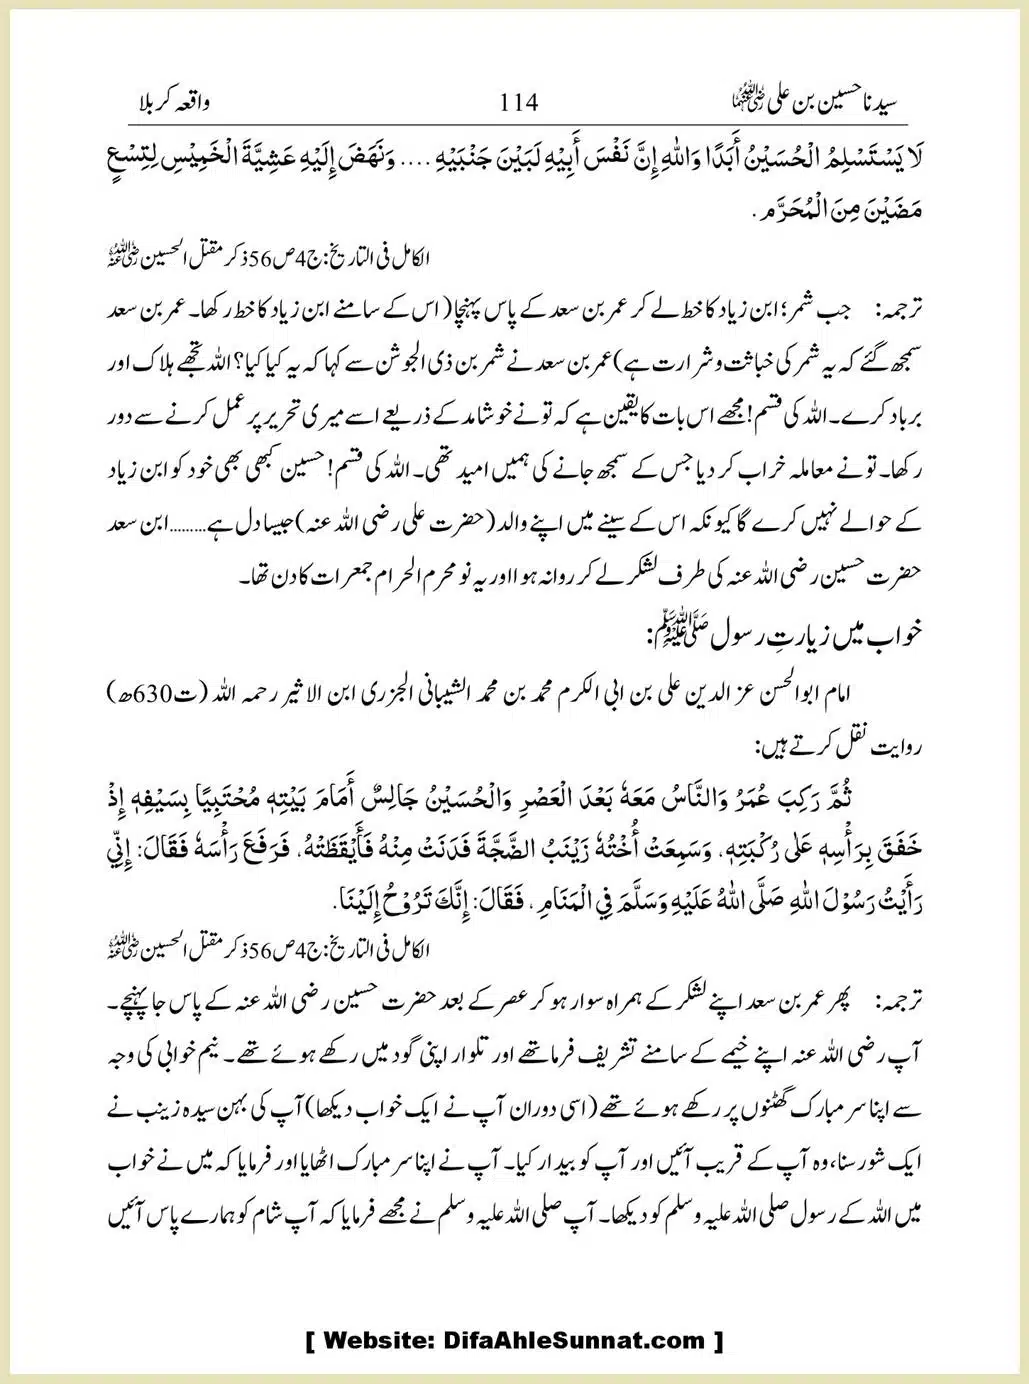 سیدنا حسین بن علی رضی اللہ عنہما 114 واقعہ کربلا
لَا يَسْتَسْلِمُ الْحُسَيْنُ أَبَدًا وَاللهِ إِنَّ نَفْسَ أَبِيْهِ لَبَيْنَ جَنْبَيْهِ .... وَنَهَضَ إِلَيْهِ عَشِيَّةَ الْخَمِيْسِ لِتِسْعٍ
مَضَيْنَ مِنَ الْمُحَرَّمِ.
الکامل فی التاریخ: ج4ص56ذکر مقتل الحسین رضی اللہ عنہ
ترجمہ: جب شمر؛ ابن زیاد کا خط لے کر عمر بن سعد کے پاس پہنچا (اس کے سامنے ابن زیاد کا خط رکھا۔ عمر بن سعد
سمجھ گئے کہ یہ شمر کی خباثت و شرارت ہے) عمر بن سعد نے شمر بن ذی الجوشن سے کہا کہ یہ کیا کیا؟ اللہ تجھے ہلاک اور
برباد کرے۔ اللہ کی قسم! مجھے اس بات کا یقین ہے کہ تو نے خوشامد کے ذریعے اسے میری تحریر پر عمل کرنے سے دور
رکھا۔ تو نے معاملہ خراب کر دیا جس کے سمجھ جانے کی ہمیں امید تھی۔ اللہ کی قسم! حسین کبھی بھی خود کو ابن زیاد
کے حوالے نہیں کرے گا کیونکہ اس کے سینے میں اپنے والد (حضرت علی رضی اللہ عنہ) جیسا دل ہے......... ابن سعد
حضرت حسین رضی اللہ عنہ کی طرف لشکر لے کر روانہ ہوا اور یہ نو محرم الحرام جمعرات کا دن تھا۔
خواب میں زیارتِ رسول ﷺ:
امام ابوالحسن عز الدین علی بن ابی الکرم محمد بن محمد الشیبانی الجزری ابن الاثیر رحمہ اللہ (ت630ھ)
روایت نقل کرتے ہیں:
ثُمَّ رَكِبَ عُمَرُ وَالنَّاسُ مَعَهُ بَعْدَ الْعَصْرِ وَالْحُسَيْنُ جَالِسٌ أَمَامَ بَيْتِهِ مُحْتَبِيًا بِسَيْفِهِ إِذْ
خَفَقَ بِرَأْسِهِ عَلٰى رُكْبَتِهِ، وَسَمِعَتْ أُخْتُهُ زَيْنَبُ الضَّجَّةَ فَدَنَتْ مِنْهُ فَأَيْقَظَتْهُ، فَرَفَعَ رَأْسَهُ فَقَالَ: إِنِّي
رَأَيْتُ رَسُوْلَ اللهِ صَلَّى اللهُ عَلَيْهِ وَسَلَّمَ فِي الْمَنَامِ، فَقَالَ: إِنَّكَ تَرُوْحُ إِلَيْنَا.
الکامل فی التاریخ: ج4ص56ذکر مقتل الحسین رضی اللہ عنہ
ترجمہ: پھر عمر بن سعد اپنے لشکر کے ہمراہ سوار ہو کر عصر کے بعد حضرت حسین رضی اللہ عنہ کے پاس جا پہنچے۔
آپ رضی اللہ عنہ اپنے خیمے کے سامنے تشریف فرما تھے اور تلوار اپنی گود میں رکھے ہوئے تھے۔ نیم خوابی کی وجہ
سے اپنا سر مبارک گھٹنوں پر رکھے ہوئے تھے (اسی دوران آپ نے ایک خواب دیکھا) آپ کی بہن سیدہ زینب نے
ایک شور سنا، وہ آپ کے قریب آئیں اور آپ کو بیدار کیا۔ آپ نے اپنا سر مبارک اٹھایا اور فرمایا کہ میں نے خواب
میں اللہ کے رسول صلی اللہ علیہ وسلم کو دیکھا۔ آپ صلی اللہ علیہ وسلم نے مجھے فرمایا کہ آپ شام کو ہمارے پاس آئیں
[ Website: DifaAhleSunnat.com ]